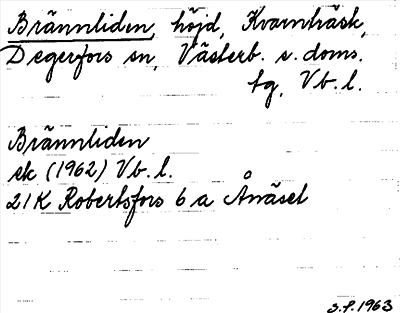 Brännliden, höjd, Kvarnträsk,
Degerfors sn, Västerb. s. doms.
tg, Vb. l.
Brännliden
ek (1962) Vb. l.
21K Robertsfors 6 a Ånäset
S.P. 1963